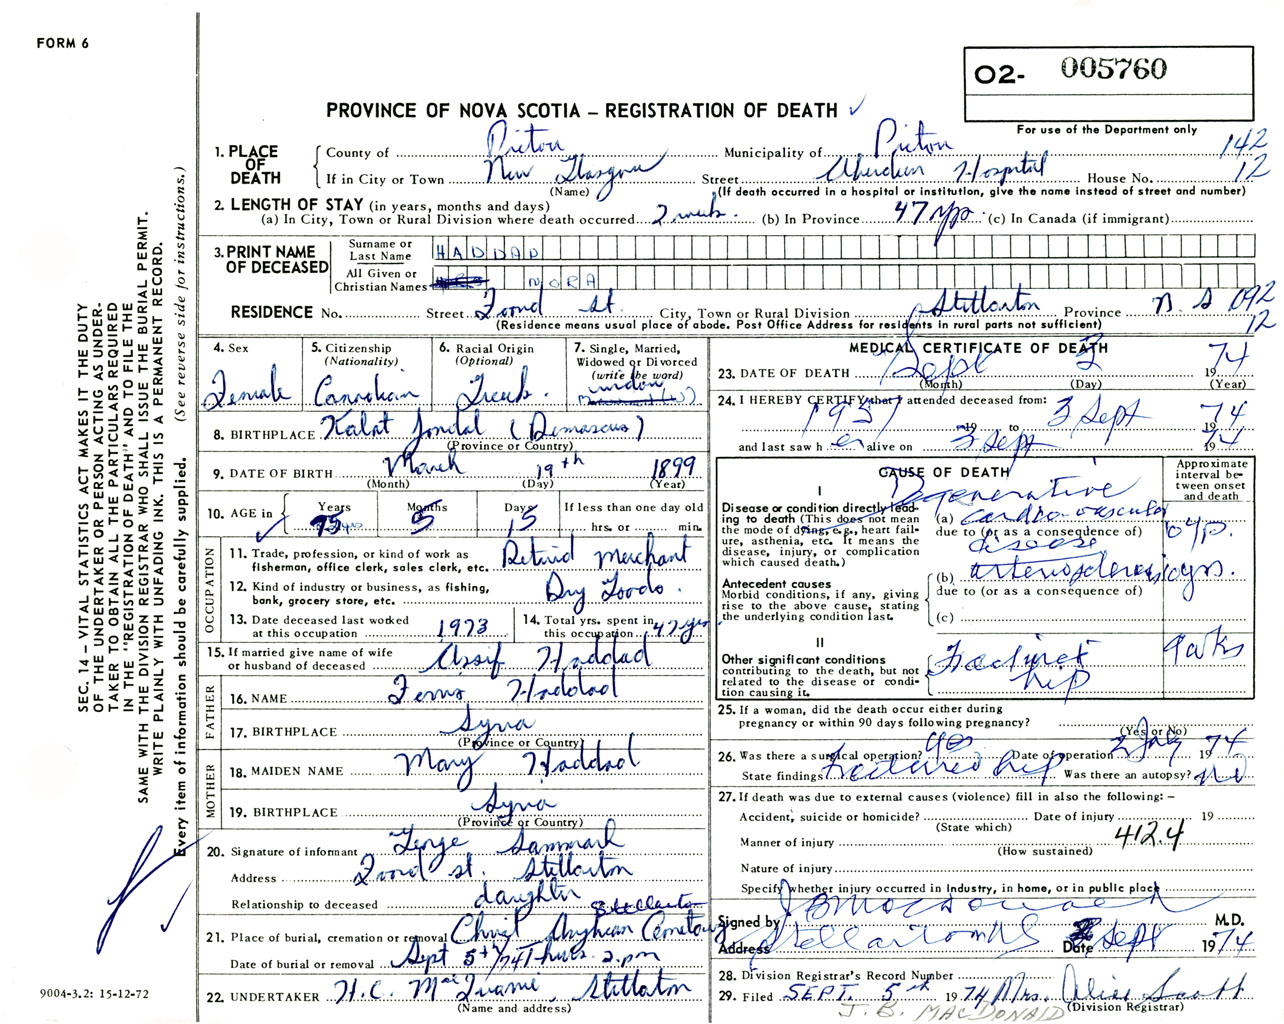 FORM 6
O2- 005760
For use of the Department only
PROVINCE OF NOVA SCOTIA – REGISTRATION OF DEATH ✓
1. PLACE OF DEATH
County of Pictou Municipality of Pictou 142
If in City or Town New Glasgow Street Aberdeen Hospital House No. 12
(Name) (If death occurred in a hospital or institution, give the name instead of street and number)
2. LENGTH OF STAY (in years, months and days)
(a) In City, Town or Rural Division where death occurred 2 weeks. (b) In Province 47 yrs. (c) In Canada (if immigrant)
3. PRINT NAME OF DECEASED
Surname or Last Name HADDAD
All Given or Christian Names NORA
RESIDENCE No. Street Foord St. City, Town or Rural Division Stellarton Province N.S 092
(Residence means usual place of abode. Post Office Address for residents in rural parts not sufficient) 12
4. Sex
Female
5. Citizenship
(Nationality)
Canadian
6. Racial Origin
(Optional)
7. Single, Married, Widowed or Divorced
(write the word)
widow
8. BIRTHPLACE Kalat Jendal (Damascus)
(Province or Country)
9. DATE OF BIRTH March 19th 1899
(Month) (Day) (Year)
10. AGE in
Years Months Days If less than one day old
75 5 15 hrs. or min.
OCCUPATION
11. Trade, profession, or kind of work as fisherman, office clerk, sales clerk, etc. Retired Merchant
12. Kind of industry or business, as fishing, bank, grocery store, etc. Dry Goods.
13. Date deceased last worked at this occupation 1973
14. Total yrs. spent in this occupation 47 yrs.
15. If married give name of wife or husband of deceased Assif Haddad
FATHER
16. NAME Ferris Haddad
17. BIRTHPLACE Syria
(Province or Country)
MOTHER
18. MAIDEN NAME Mary Haddad
19. BIRTHPLACE Syria
(Province or Country)
20. Signature of informant
Address Foord St. Stellarton
Relationship to deceased daughter
Stellarton
21. Place of burial, cremation or removal Christ Anglican Cemetery
Date of burial or removal Sept 5th/74 Thurs. 2 pm
22. UNDERTAKER H.C. Stellarton
(Name and address)
MEDICAL CERTIFICATE OF DEATH
23. DATE OF DEATH Sept 3 1974
(Month) (Day) (Year)
24. I HEREBY CERTIFY that I attended deceased from:
1957 19 to 3 Sept 1974
and last saw h er alive on 3 Sept 1974
CAUSE OF DEATH
Approximate interval between onset and death
I
Disease or condition directly leading to death (This does not mean the mode of dying, e.g., heart failure, asthenia, etc. It means the disease, injury, or complication which caused death.)
Degenerative
(a) cardio-vascular
due to (or as a consequence of)
disease
Antecedent causes
Morbid conditions, if any, giving rise to the above cause, stating the underlying condition last.
(b) arteriosclerosis yrs.
due to (or as a consequence of)
(c)
II
Other significant conditions contributing to the death, but not related to the disease or condition causing it.
Fractured hip 9 wks
25. If a woman, did the death occur either during pregnancy or within 90 days following pregnancy?
(Yes or No)
26. Was there a surgical operation? yes Date of operation 2 July 1974
State findings fractured hip Was there an autopsy? no
27. If death was due to external causes (violence) fill in also the following: –
Accident, suicide or homicide? Date of injury 19
(State which)
Manner of injury 412.4
(How sustained)
Nature of injury
Specify whether injury occurred in Industry, in home, or in public place
Signed by J B MacDonald M.D.
Address Stellarton NS Date Sept 1974
28. Division Registrar's Record Number
29. Filed SEPT. 5th 1974 Mrs. Alice Scott
(Division Registrar)
J. B. MACDONALD
SEC. 14 – VITAL STATISTICS ACT MAKES IT THE DUTY
OF THE UNDERTAKER OR PERSON ACTING AS UNDER-
TAKER TO OBTAIN ALL THE PARTICULARS REQUIRED
IN THE "REGISTRATION OF DEATH" AND TO FILE THE
SAME WITH THE DIVISION REGISTRAR WHO SHALL ISSUE THE BURIAL PERMIT.
WRITE PLAINLY WITH UNFADING INK. THIS IS A PERMANENT RECORD.
Every item of information should be carefully supplied. (See reverse side for instructions.)
9004-3.2: 15-12-72